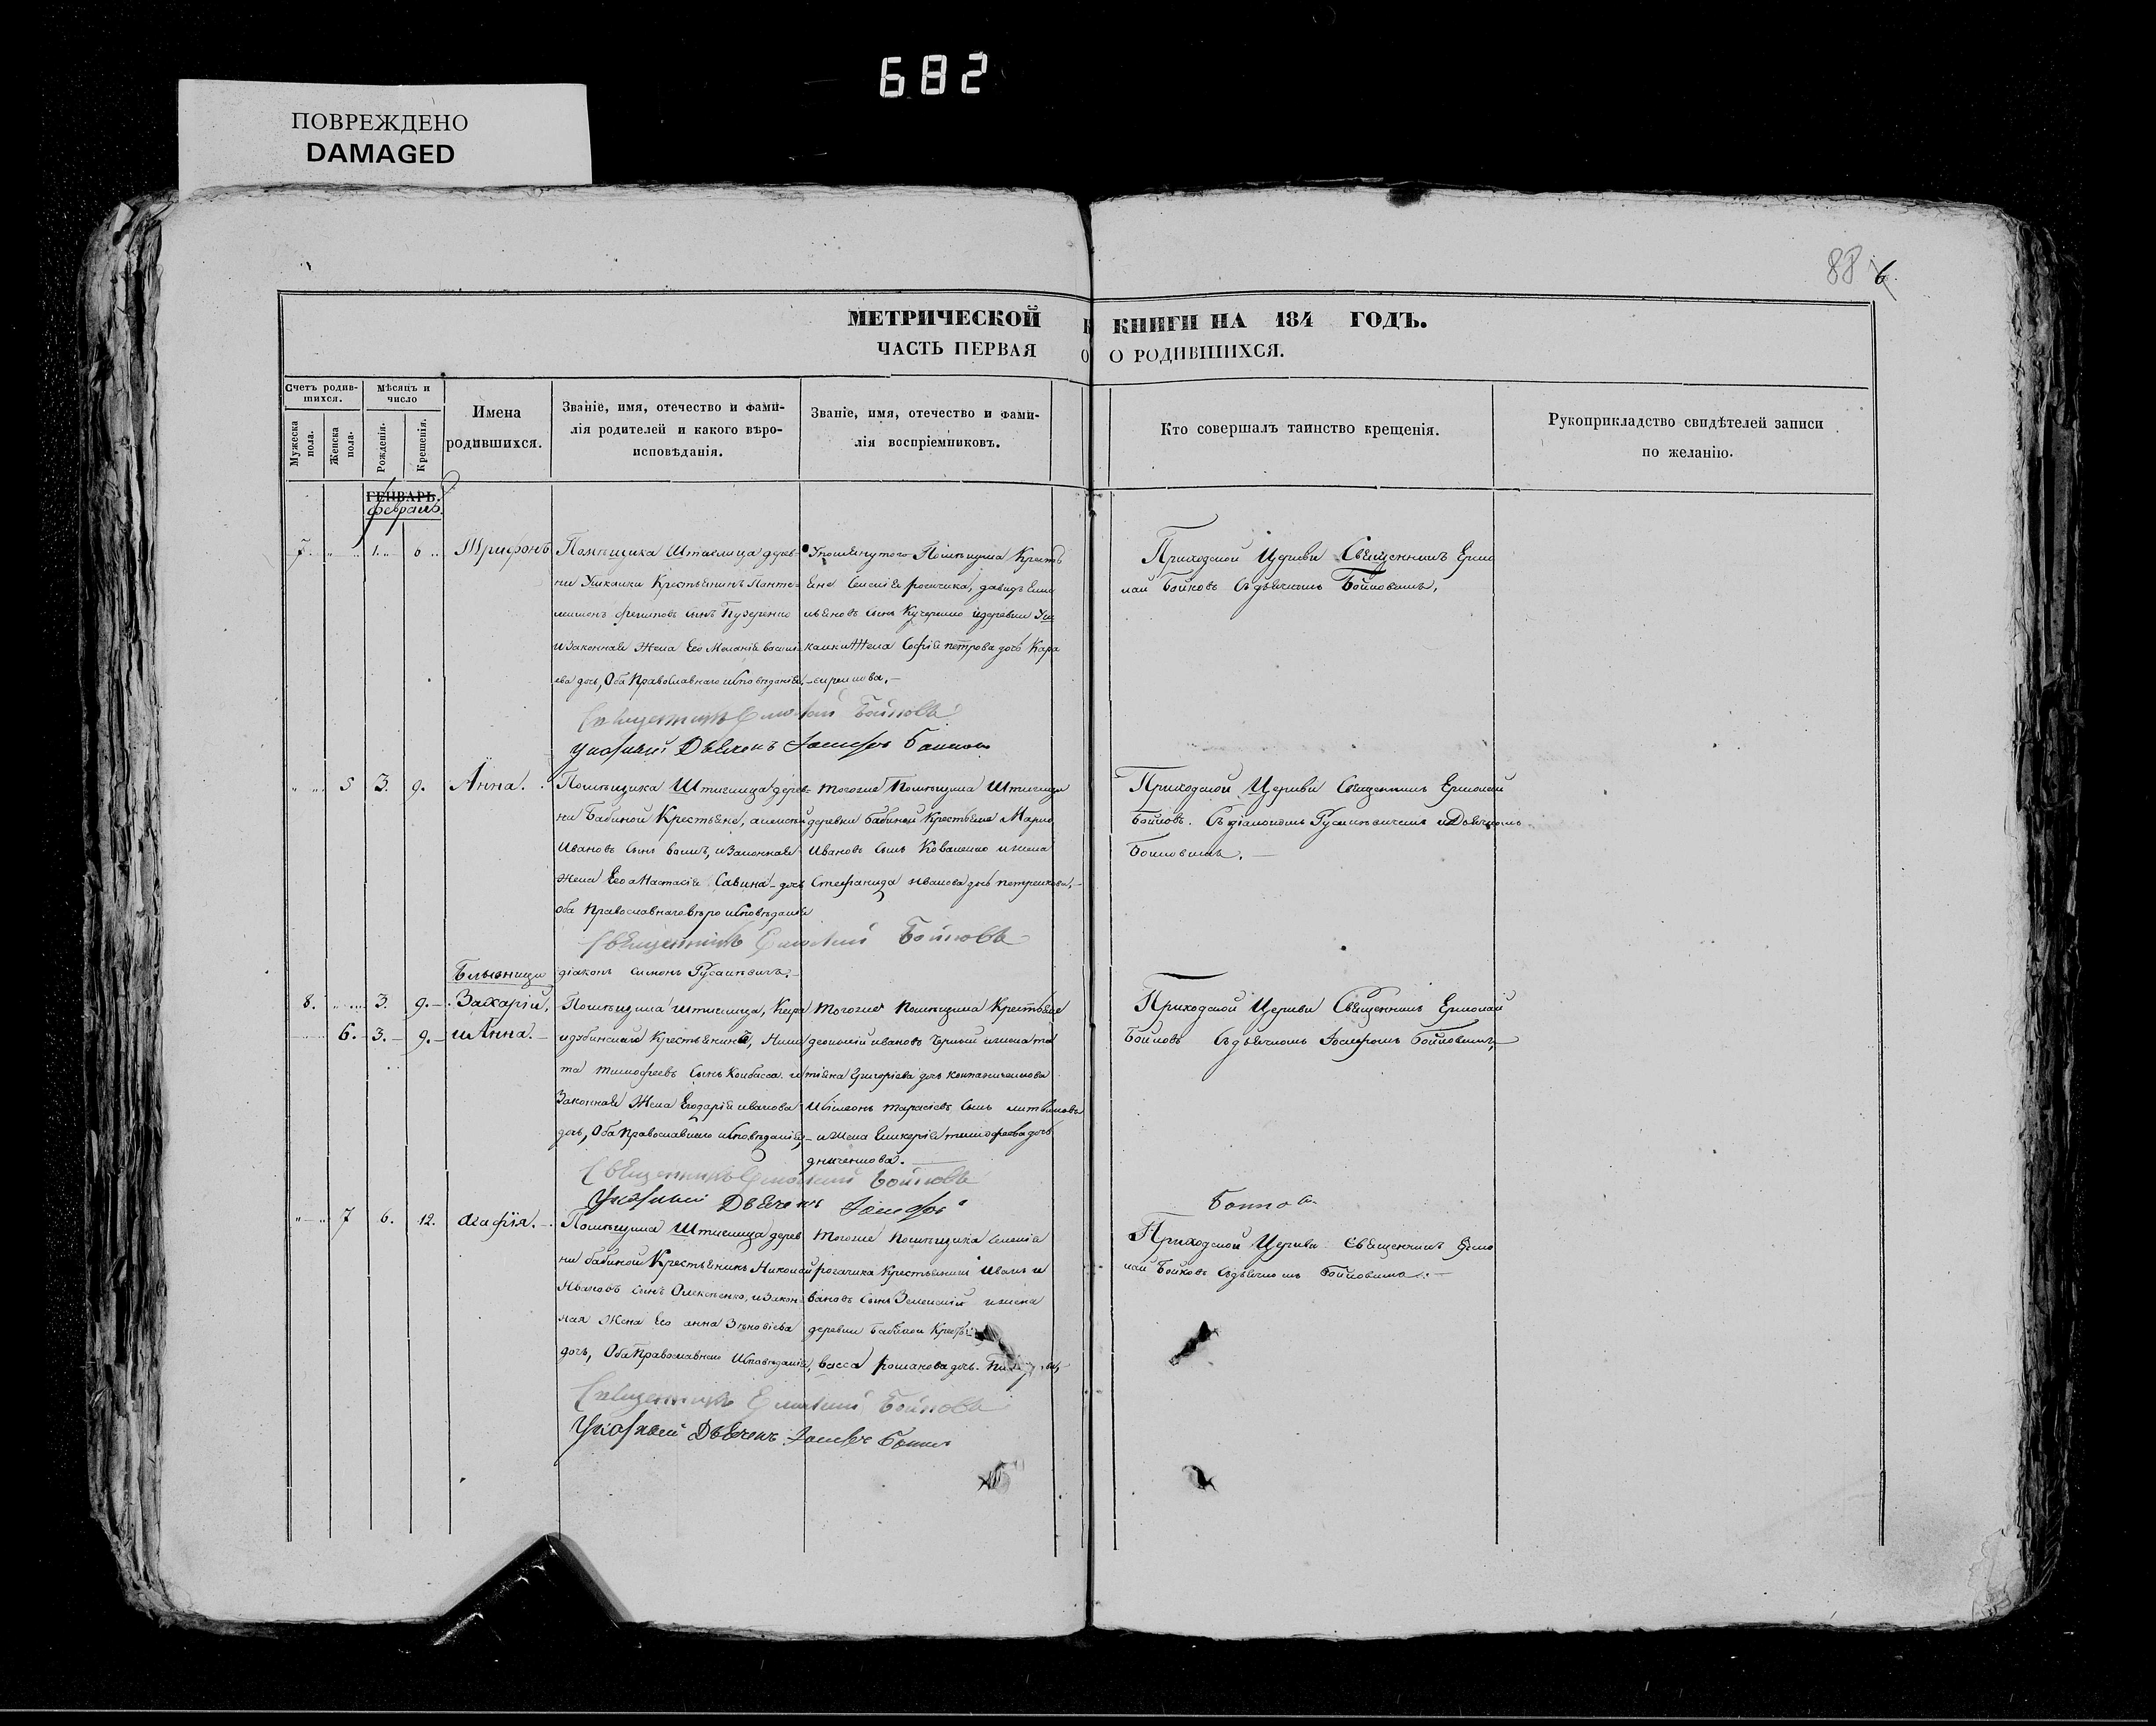 682
ПОВРЕЖДЕНО
DAMAGED
88 6
МЕТРИЧЕСКОЙ КНИГИ НА 184 ГОДЪ.
ЧАСТЬ ПЕРВАЯ О РОДИВШИХСЯ.
Счетъ родив-
шихся.
Мужеска пола.
Женска пола.
Мѣсяцъ и
число
Рожденія.
Крещенія.
Имена
родившихся.
Званіе, имя, отечество и фами-
лія родителей и какого вѣро-
исповѣданія.
Званіе, имя, отечество и фами-
лія воспріемниковъ.
Кто совершалъ таинство крещенія.
Рукоприкладство свидѣтелей записи
по желанію.
ГЕНВАРЬ.
февраль.
7. 1. 6 Трифонъ
Помѣщика Штиглица дерев-
ни Ушкалки Крестьянинъ
сынъ
и Законная Жена Его Меланія васил
ева дочь, Оба Православнаго исповѣданія,
Упомянутого Помѣщика Кресть
яне Рогачика, давидъ Еме
льяновъ Сынъ Кучеренко и деревни Уш
калки Жена Софія петрова дочь Кара
Приходской Церкви Священникъ Ермо
лай Бойковъ Съ дьячкомъ Бойковымъ,
Священникъ Ермолай Бойковъ
Указный Дьячекъ Іосифъ Бойковъ
5 3. 9. Анна.
Помѣщика Штиглица дерев-
ни Бабиной Крестьяне,
Ивановъ Сынъ и Законная
Жена Его Анастасія Савина дочь
Оба Православнаго вѣро исповѣданія
Тогоже Помѣщика Штиглица
деревни Бабиной Крестьяне Марко
Ивановъ Сынъ Коваленко и жена
Стефанида Иванова дочь петренкова,
Приходской Церкви Священникъ Ермолай
Бойковъ. Съ діакономъ Русаневичемъ и Дьячкомъ
Бойковымъ.
Священникъ Ермолай Бойковъ
діаконъ Симонъ Русаневичъ.
Близници
8. 3. 9. Захарій,
6. 3. 9. и Анна.
Помѣщика Штиглица,
Крестьянинъ, Ники
та тимофеевъ Сынъ Колбасса и
Законная Жена Евдокія иванова
дочь, Оба Православнаго исповѣданія,
Тогоже Помѣщика Крестьяне
ивановъ Черный и жена та
тіяна Григоріева дочь
и Симеонъ тарасіевъ Сынъ литвиновъ
и Жена Гликерія тимофеева дочь
Приходской Церкви Священникъ Ермолай
Бойковъ Съ дьячкомъ Іосифомъ Бойковымъ,
Священникъ Ермолай Бойковъ
Указный Дьячекъ Іосифъ Бойковъ
7 6. 12. Агафія.
Помѣщика Штиглица дерев
ни бабиной Крестьянинъ Николай
Ивановъ сынъ Олексеенко, и Закон
ная Жена Его анна Зѣновіева
дочь, Оба Православнаго исповѣданія,
Тогоже Помѣщика Селенія
рогачика Крестьянинъ Иванъ и
вановъ Сынъ Зеленскій и жена
деревни Бабиной
васса романова дочь.
Приходской Церкви Священникъ Ермо
лай Бойковъ Съ дьячкомъ Бойковымъ.
Священникъ Ермолай Бойковъ
Указный Дьячекъ Іосифъ Бойковъ